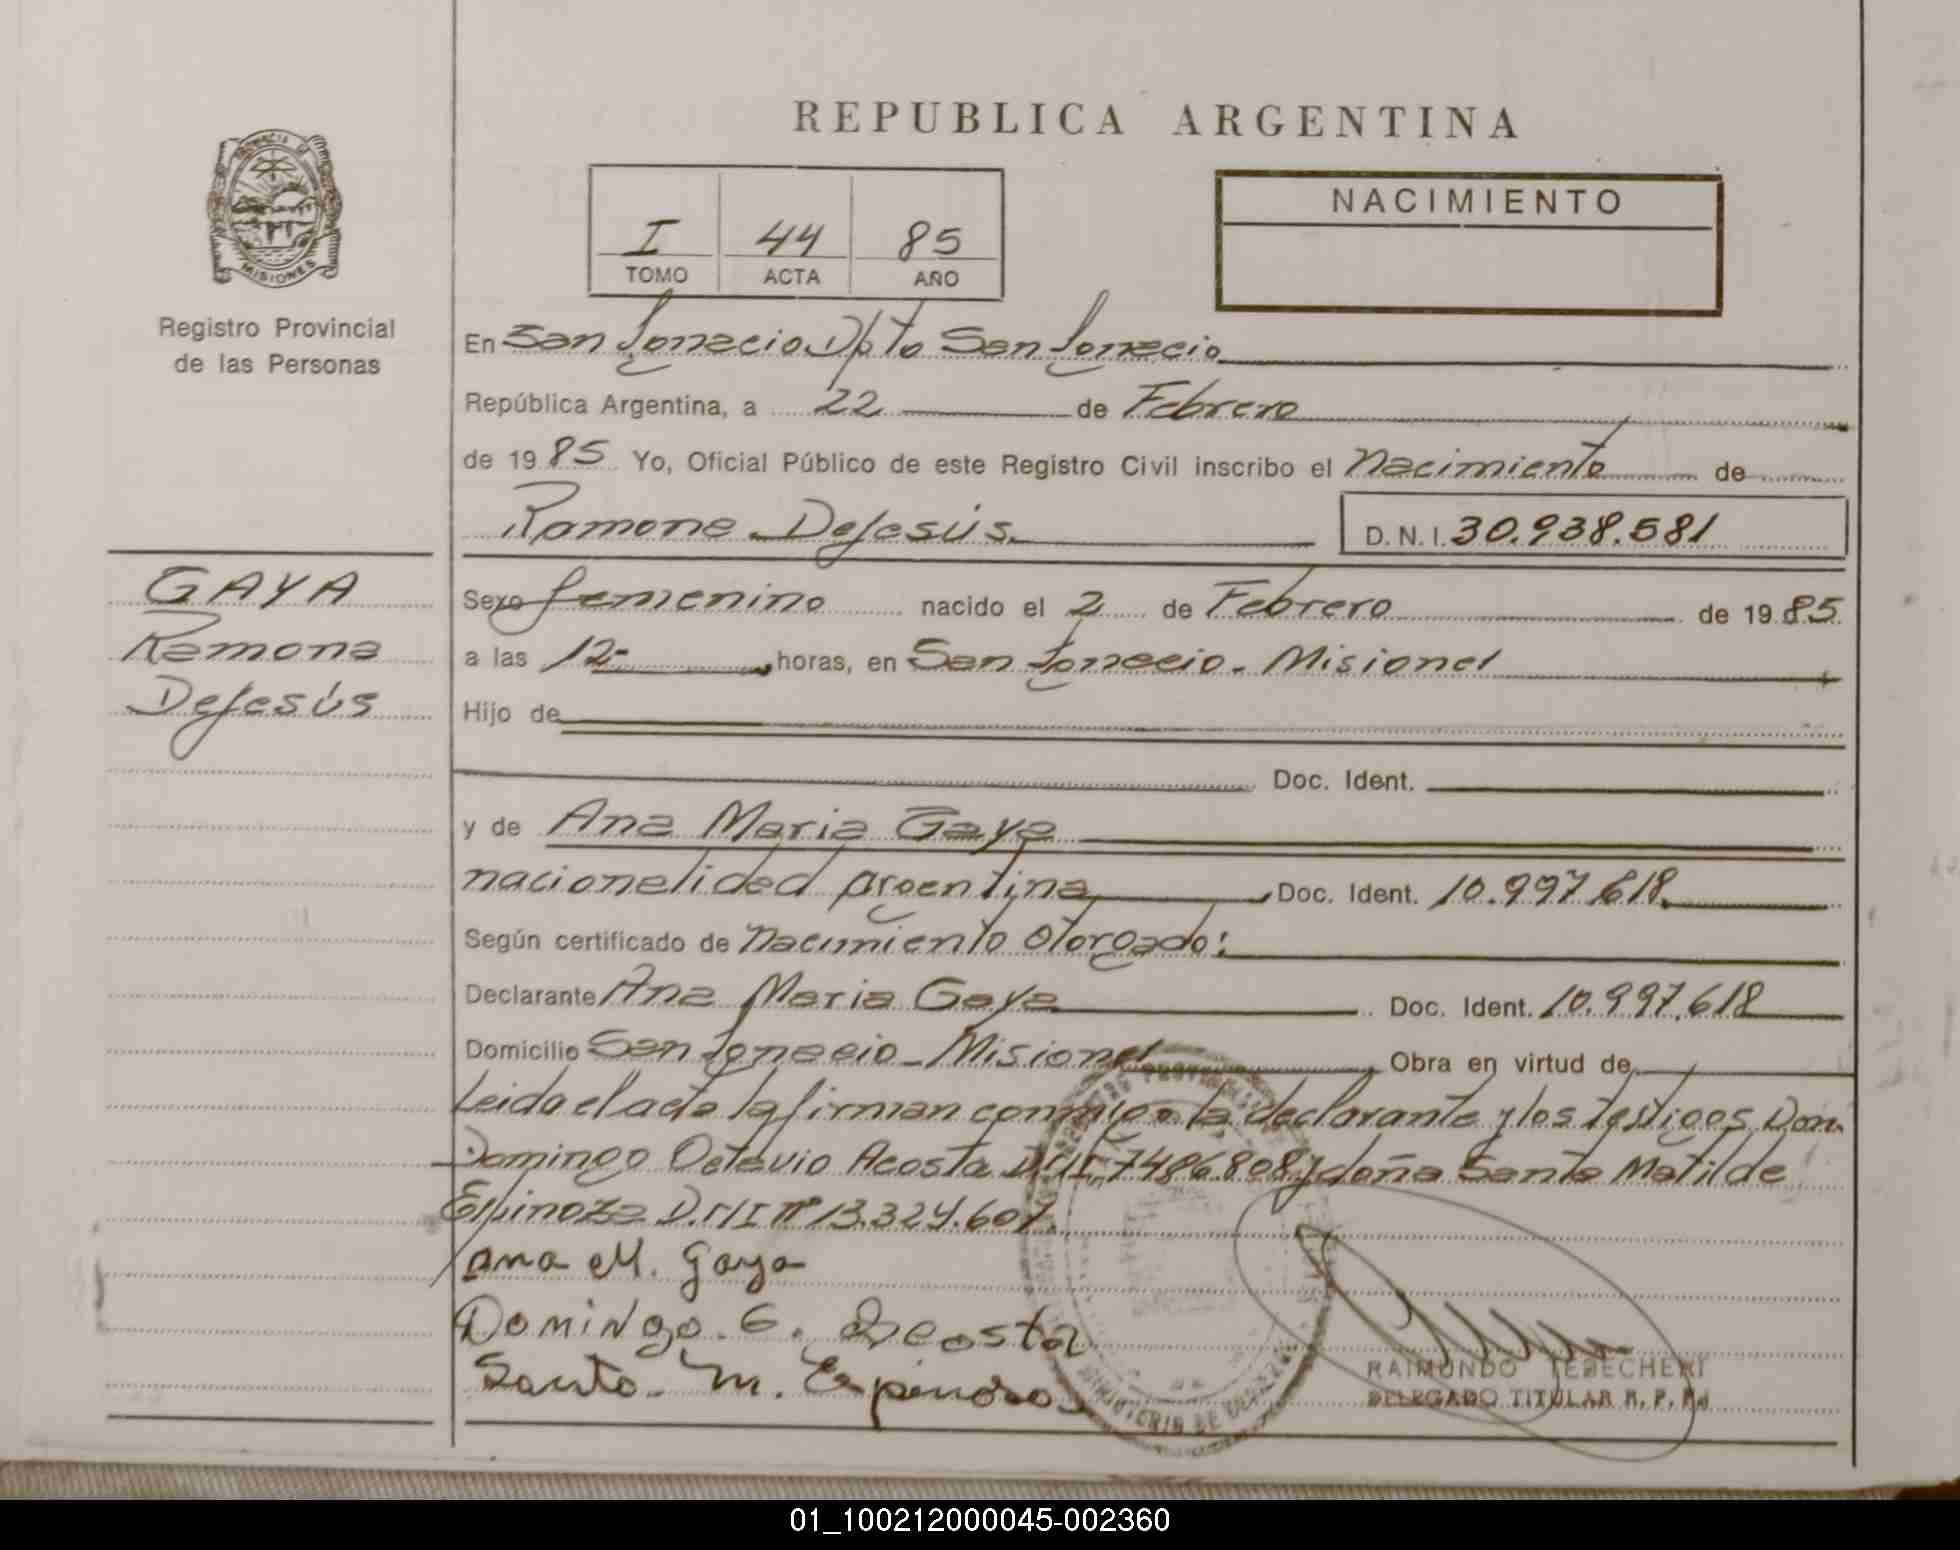 REPUBLICA ARGENTINA
MISIONES
Registro Provincial
de las Personas
I 44 85
TOMO ACTA AÑO
NACIMIENTO
En San Ignacio Dpto San Ignacio
República Argentina, a 22 de Febrero
de 1985 Yo, Oficial Público de este Registro Civil inscribo el Nacimiento de
Ramona DeJesús D.N.I. 30.938.581
GAYA
Ramona
DeJesús
Sexo femenino nacido el 2 de Febrero de 1985
a las 12- horas, en San Ignacio - Misiones
Hijo de
Doc. Ident.
y de Ana Maria Gaya
nacionalidad argentina Doc. Ident. 10.997.618
Según certificado de Nacimiento otorgado:
Declarante Ana Maria Gaya Doc. Ident. 10.997.618
Domicilio San Ignacio - Misiones Obra en virtud de
Leida el acta la firman conmigo la declarante y los testigos Don
Domingo Octavio Acosta 7486.808 y doña Santa Matilde
Espinoza D.N.I nº 13.324.607.
Ana M. Gaya
Domingo. Acosta
Santa M. Espinoza
RAIMUNDO TEBECHERI
DELEGADO TITULAR R. P. P.
01_100212000045-002360